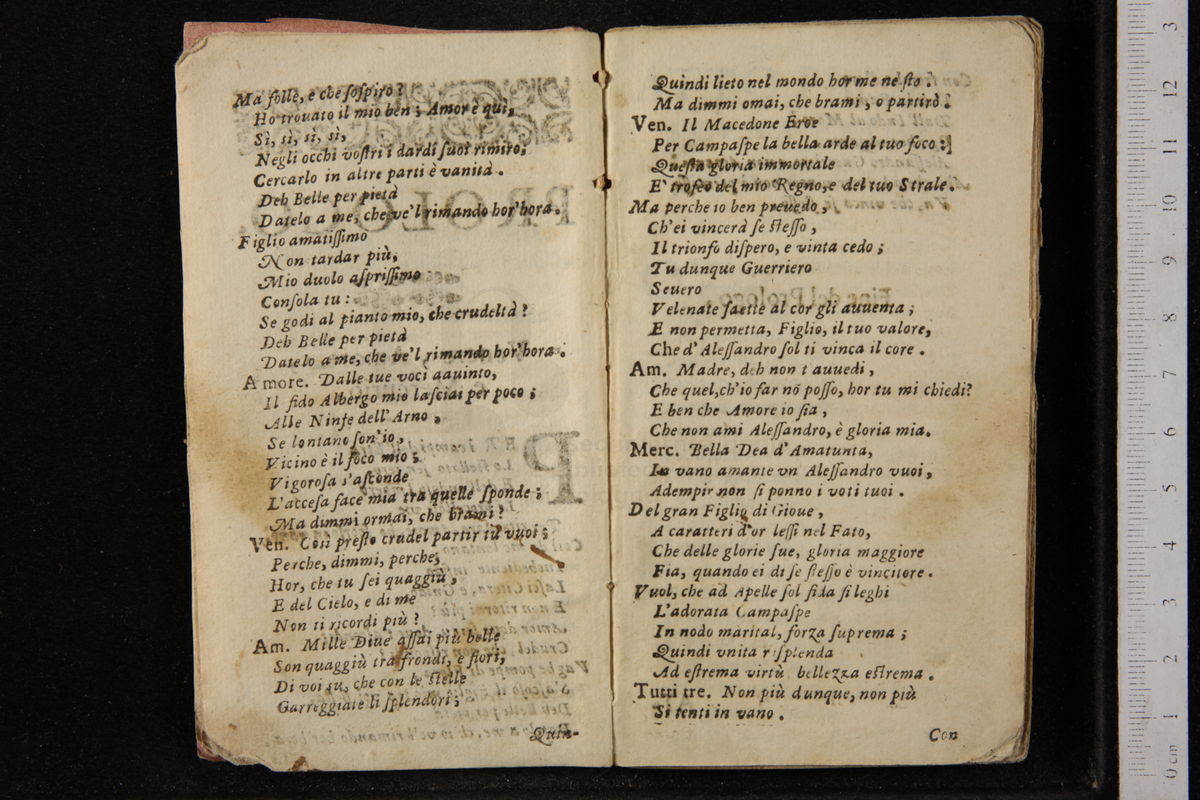 Ma folle, e che ſoſpiro?
Ho trouato il mio ben; Amor è quì,
Sì, sì, sì, sì,
Negli occhi voſtri i dardi ſuoi rimiro,
Cercarlo in altre parti è vanità.
Deh Belle per pietà
Datelo a me, che ve'l rimando hor'hora.
Figlio amatiſſimo
Non tardar più,
Mio duolo aſpriſſimo
Conſola tu:
Se godi al pianto mio, che crudeltà?
Deh Belle per pietà
Datelo a me, che ve'l rimando hor'hora.
Amore. Dalle tue voci aauinto,
Il fido Albergo mio laſciai per poco;
Alle Ninfe dell'Arno,
Se lontano ſon'io,
Vicino è il foco mio;
Vigoroſa s'aſconde
L'acceſa face mia tra quelle ſponde;
Ma dimmi ormai, che brami?
Ven. Così preſto crudel partir tù vuoi;
Perche, dimmi, perche,
Hor, che tu ſei quaggiù,
E del Cielo, e di me
Non ti ricordi più?
Am. Mille Diue aſſai più belle
Son quaggiù tra frondi, e fiori,
Di voi su, che con le ſtelle
Garreggiate li ſplendori;
Quin-
Quindi lieto nel mondo hor me ne ſto:
Ma dimmi omai, che brami, o partirò.
Ven. Il Macedone Eroe
Per Campaſpe la bella arde al tuo foco:
Queſta gloria immortale
E' trofeo del mio Regno, e del tuo Strale.
Ma perche io ben preuedo,
Ch'ei vincerà ſe ſteſſo,
Il trionfo diſpero, e vinta cedo;
Tu dunque Guerriero
Seuero
Velenate ſaette al cor gli auuenta;
E non permetta, Figlio, il tuo valore,
Che d'Aleſſandro ſol ti vinca il core.
Am. Madre, deh non t auuedi,
Che quel, ch'io far nõ poſſo, hor tu mi chiedi?
E ben che Amore io ſia,
Che non ami Aleſſandro, è gloria mia.
Merc. Bella Dea d'Amatunta,
In vano amante vn Aleſſandro vuoi,
Adempir non ſi ponno i voti tuoi.
Del gran Figlio di Gioue,
A caratteri d'or leſſi nel Fato,
Che delle glorie ſue, gloria maggiore
Fia, quando ei di ſe ſteſſo è vincitore.
Vuol, che ad Apelle ſol fida ſi leghi
L'adorata Campaſpe
In nodo marital, forza ſuprema;
Quindi vnita riſplenda
Ad eſtrema virtù bellezza eſtrema.
Tutti tre. Non più dunque, non più
Si tenti in vano.
Con